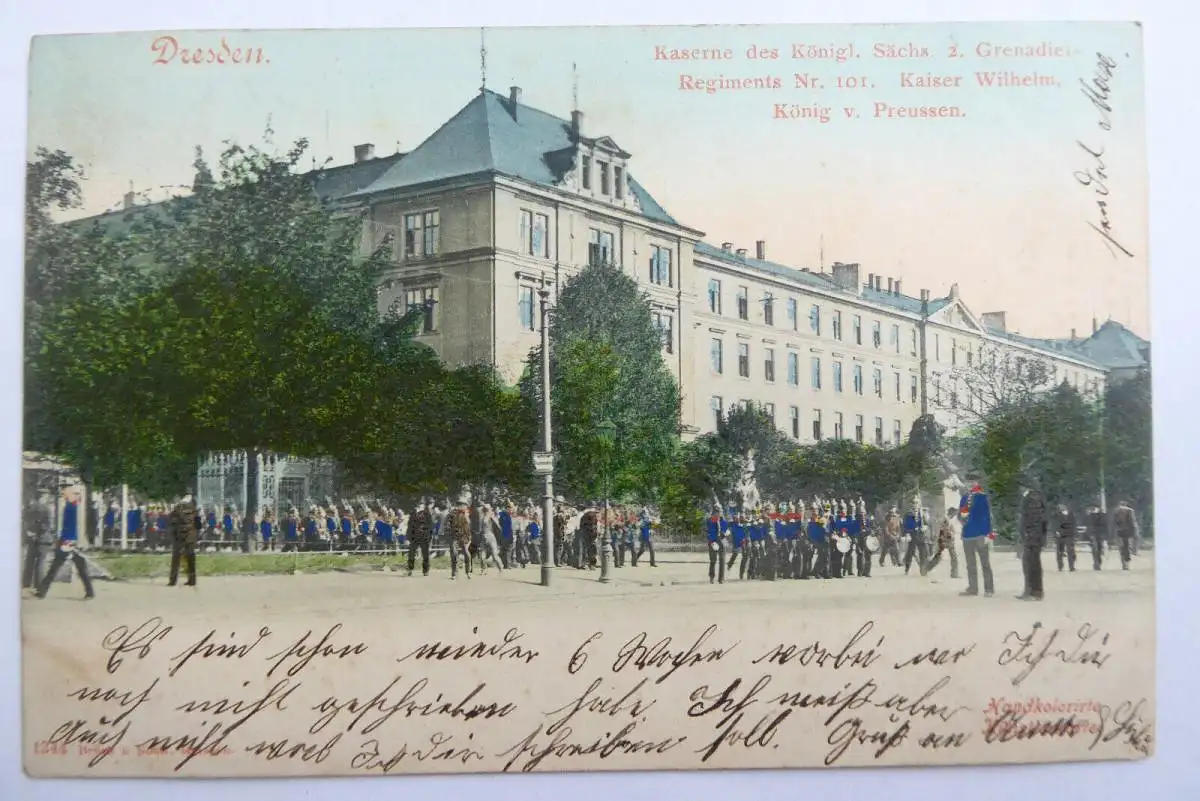 Dresden.
Kaserne des Königl. Sächs. 2. Grenadier-
Regiments Nr. 101. Kaiser Wilhelm,
König v. Preussen.
Max
Es sind schon wieder 6 Wochen vorbei wo Ich dir
noch nicht geschrieben habe Ich weiß aber
Auch nicht was Ich Dir schreiben soll. Gruß an
Handkolorirte